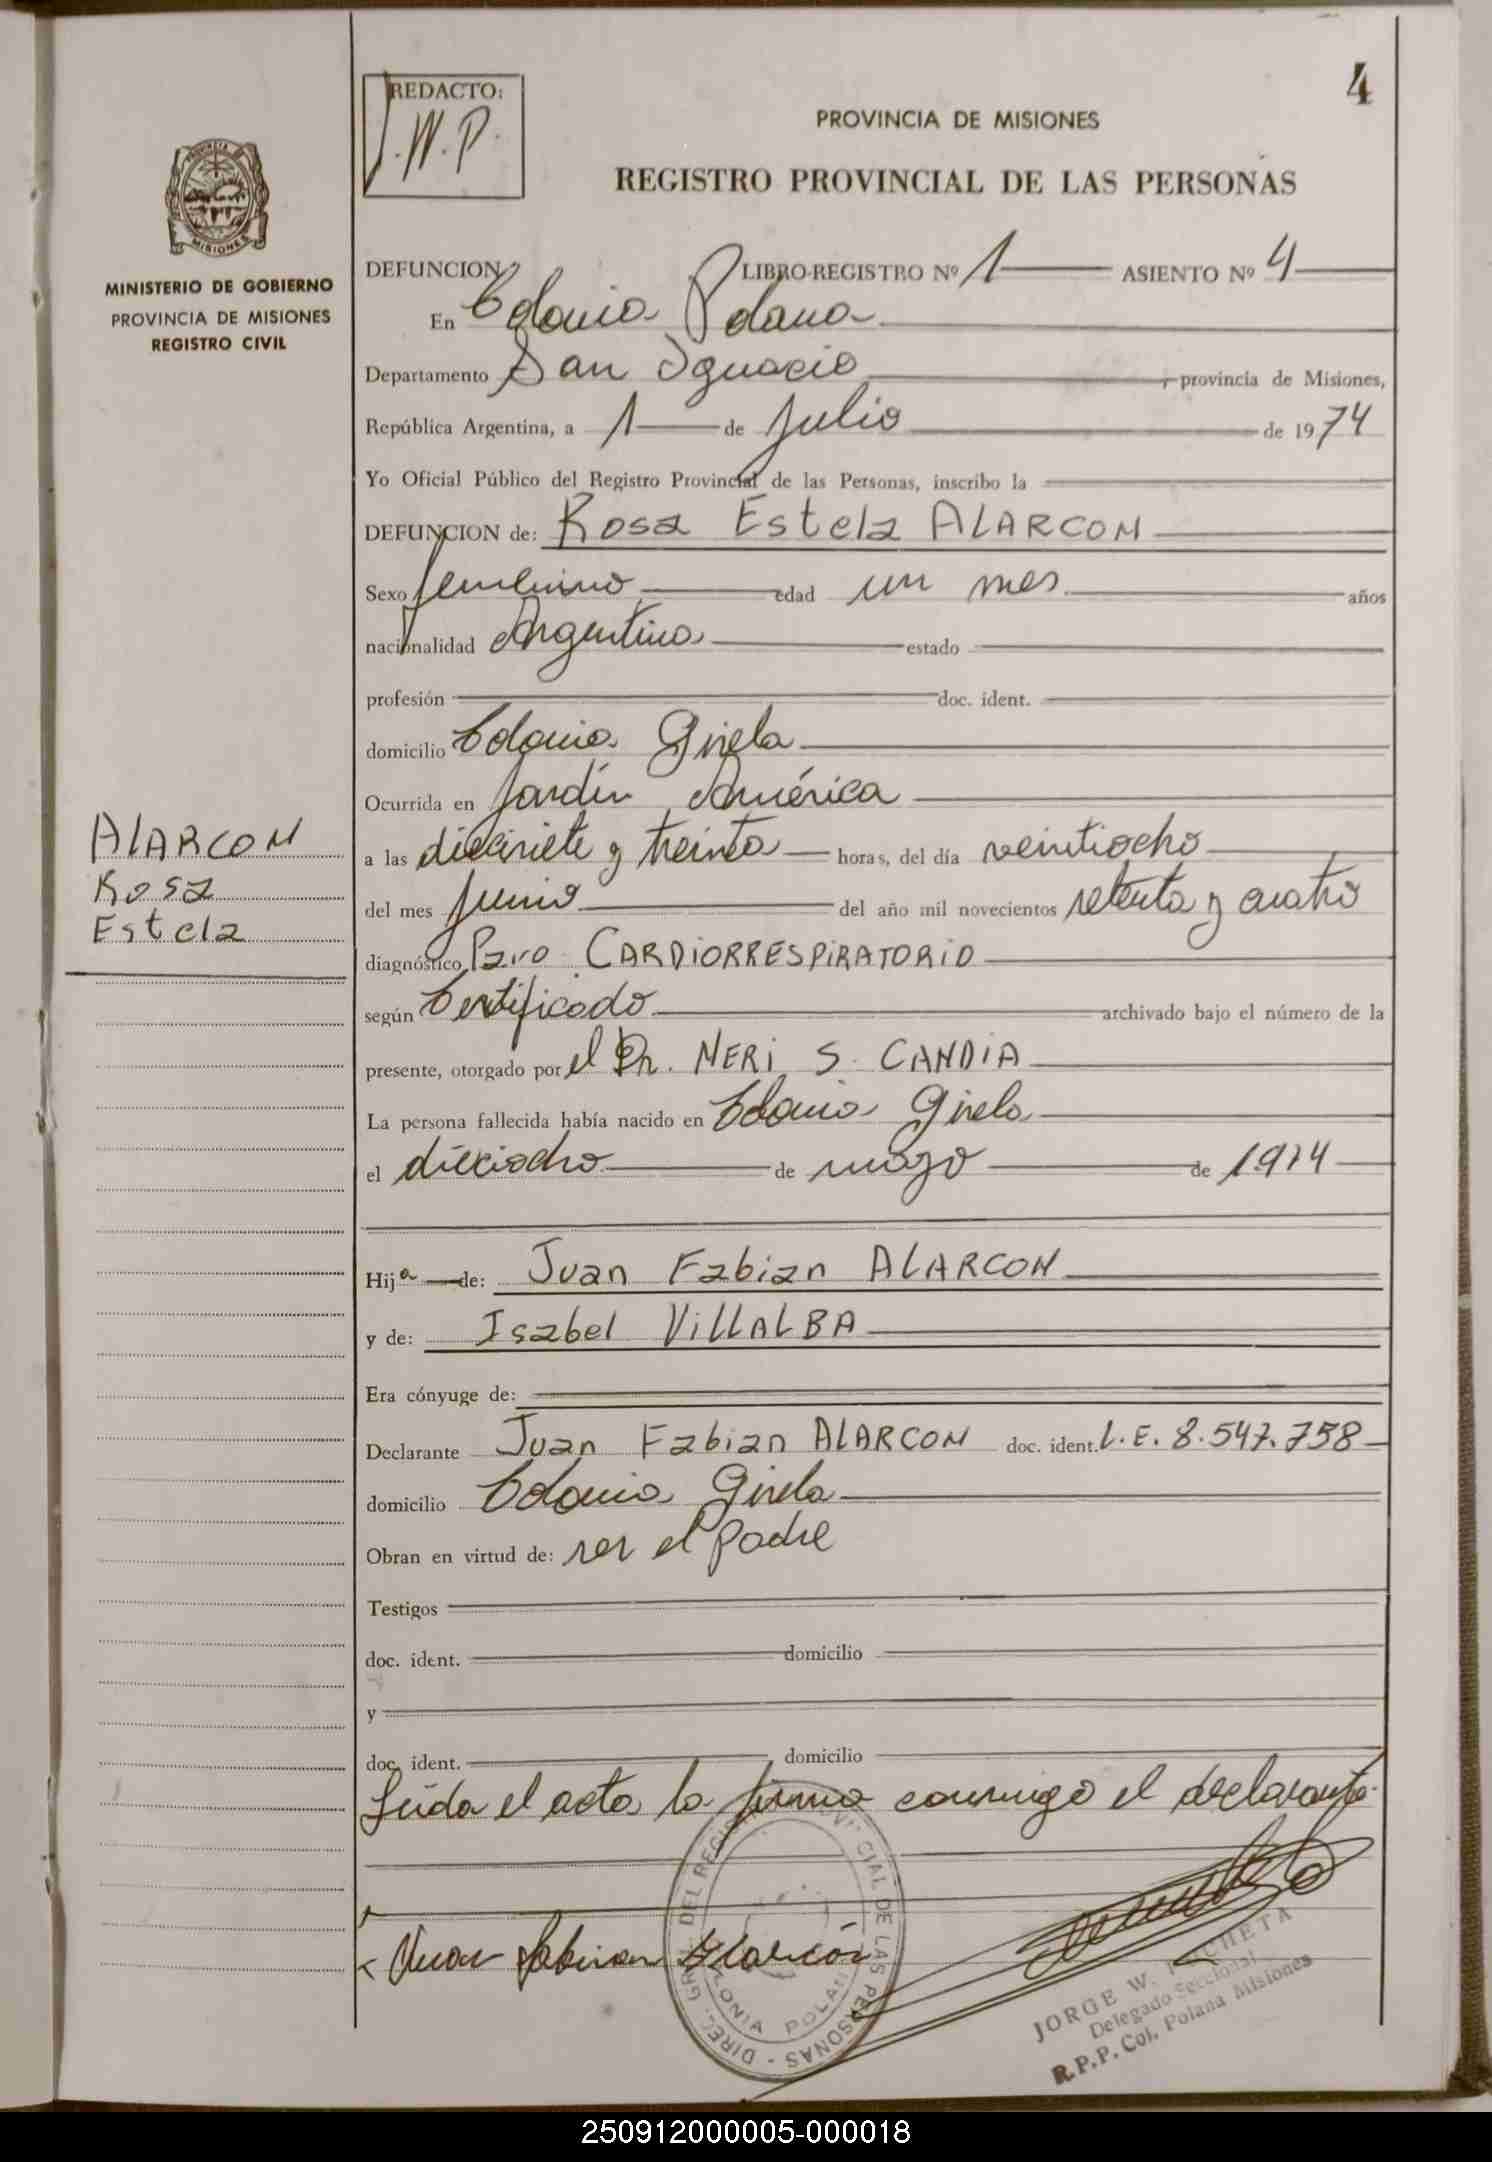 4
REDACTO:
J.W.P.
PROVINCIA DE MISIONES
REGISTRO PROVINCIAL DE LAS PERSONAS
PROVINCIA
MISIONES
MINISTERIO DE GOBIERNO
PROVINCIA DE MISIONES
REGISTRO CIVIL
DEFUNCION LIBRO-REGISTRO Nº 1 ASIENTO Nº 4
En Colonia Polana
Departamento San Ignacio, provincia de Misiones,
República Argentina, a 1 de Julio de 1974
Yo Oficial Público del Registro Provincial de las Personas, inscribo la
DEFUNCION de: Rosa Estela ALARCON
Sexo femenino edad un mes años
nacionalidad Argentina estado
profesión doc. ident.
domicilio Colonia Gisela
Ocurrida en Jardín América
a las diecisiete y treinta horas, del día veintiocho
del mes junio del año mil novecientos setenta y cuatro
diagnóstico Paro CARDIORRESPIRATORIO
según Certificado archivado bajo el número de la
presente, otorgado por el Dr. NERI S. CANDIA
La persona fallecida había nacido en Colonia Gisela
el dieciocho de mayo de 1974
ALARCON
Rosa
Estela
Hija de: Juan Fabian ALARCON
y de: Isabel VILLALBA
Era cónyuge de:
Declarante Juan Fabian ALARCON doc. ident. L.E. 8.547.758
domicilio Colonia Gisela
Obran en virtud de: ser el padre
Testigos
doc. ident. domicilio
y
doc. ident. domicilio
Leída el acta la firma conmigo el declarante.
Juan Fabian Alarcón
DIREC. GRAL. DEL REGISTRO PROVINCIAL DE LAS PERSONAS -
COLONIA POLANA
JORGE W.
Delegado Seccional
R.P.P. Col. Polana Misiones
250912000005-000018